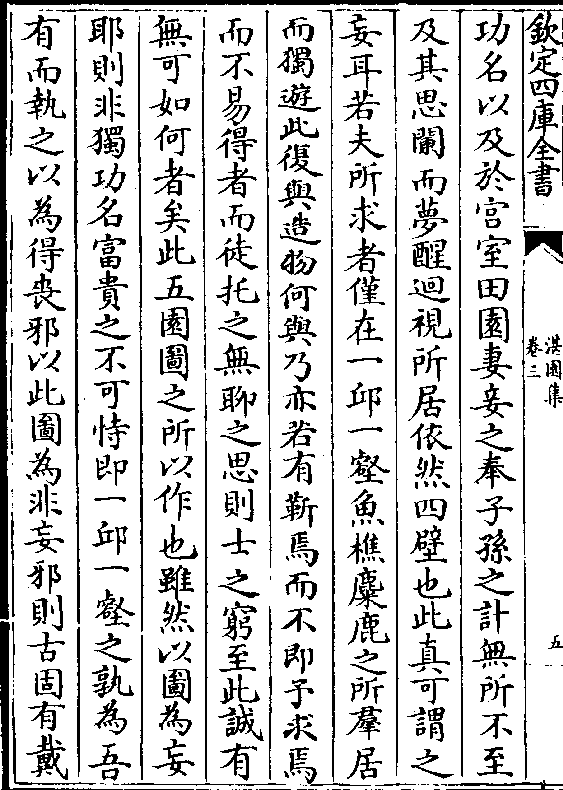 欽定四庫全書
湛園集
卷三
五
功名以及於宫室田園妻妾之奉子孫之計無所不至
及其思闌而夢醒迴視所居依然四壁也此真可謂之
妄耳若夫所求者僅在一邱一壑魚樵麋鹿之所羣居
而獨遊此復與造物何與乃亦若有靳焉而不即予求焉
而不易得者而徒托之無聊之思則士之窮至此誠有
無可如何者矣此五園圖之所以作也雖然以圖為妄
耶則非獨功名富貴之不可恃即一邱一壑之孰為吾
有而執之以為得喪邪以此圖為非妄邪則古固有戴